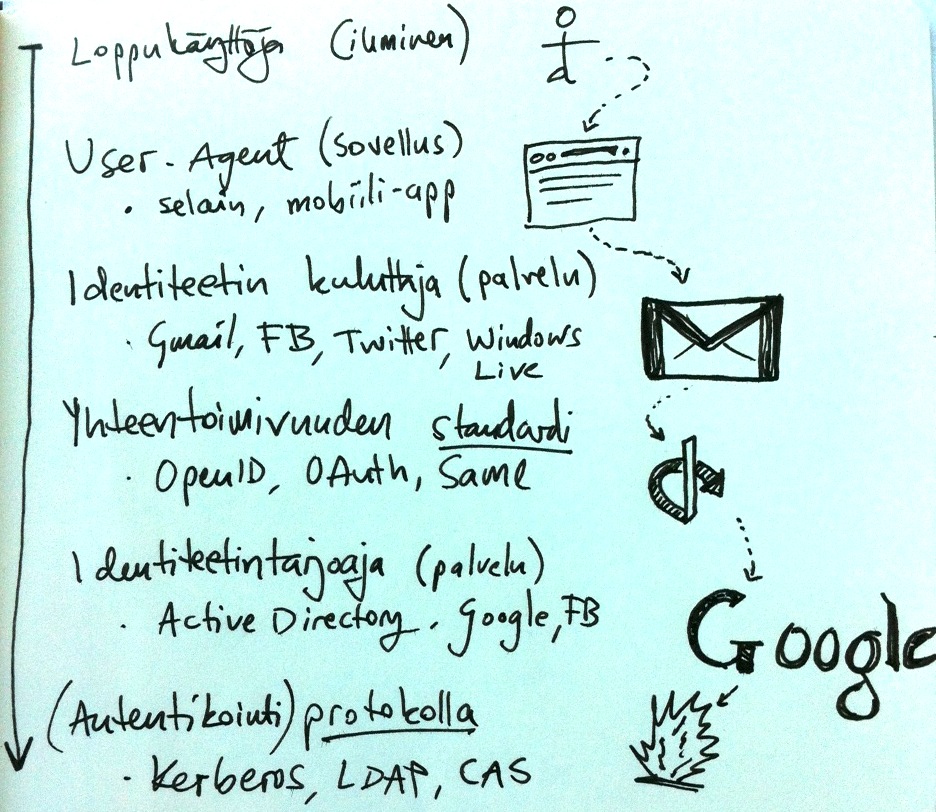 Loppukäyttäjä (iluminen)
User-Agent (sovellus)
• selain, mobiili-app
Identiteetin kuluttaja (palvelu)
• Gmail, FB, Twitter, Windows
Live
Yhteentoimivuuden standardi
• OpenID, OAuth, Same
Identiteetintarjoaja (palvelu)
• Active Directory, Google, FB
Google
(Autentikointi) protokolla
• Kerberos, LDAP, CAS